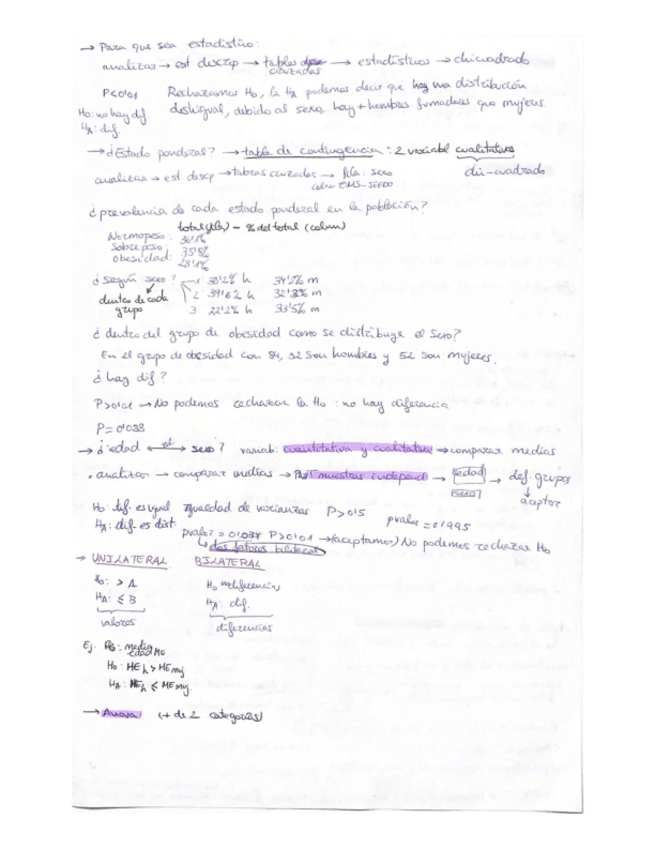 → Para que sea estadistico:
analizar → est descrip → tablas cruzadas → estadísticos → chicuadrado
P<0'01 Rechazamos Ho, la HA podemos decir que hay una distribución
Ho: no hay dif desigual, debido al sexo, hay + hombres fumadores que mujeres.
HA: dif.
→ ¿Estado ponderal? → tabla de contingencia: 2 variabl cualitativas
analizar → est. descp → tablas cruzadas → fila: sexo chi-cuadrado
¿prevalencia de cada estado ponderal en la población?
total (fila) - % del total (colum)
Normopeso:
Sobrepeso: 35'5%
Obesidad:
¿según sexo? 1 h 34'2% m
dentro de cada 2 h 32'3% m
grupo 3 22'2% h 33'5% m
¿dentro del grupo de obesidad como se distribuye el sexo?
En el grupo de obesidad con 84, 32 son hombres y 52 son mujeres.
¿hay dif?
P>0'01 → No podemos rechazar la Ho: no hay diferencia
P=0'038
→ ¿edad ↔ sexo? variab: cuantitativa y cualitativa → comparar medias
• analizar → comparar medias → muestras independ → edad → def. grupos
sexo
Ho: igualdad de varianzas P>0'5
HA: dif es dist pvalor = 0'995
P>0'01 → (aceptamos) No podemos rechazar Ho
→ UNILATERAL BILATERAL
Ho: > A Ho
HA: ≤ B HA: dif.
valores diferencias
Ej.
Ho: MEh > MEmuj
HA: MEh ≤ MEmuj.
→ Anova (+ de 2 categorías)